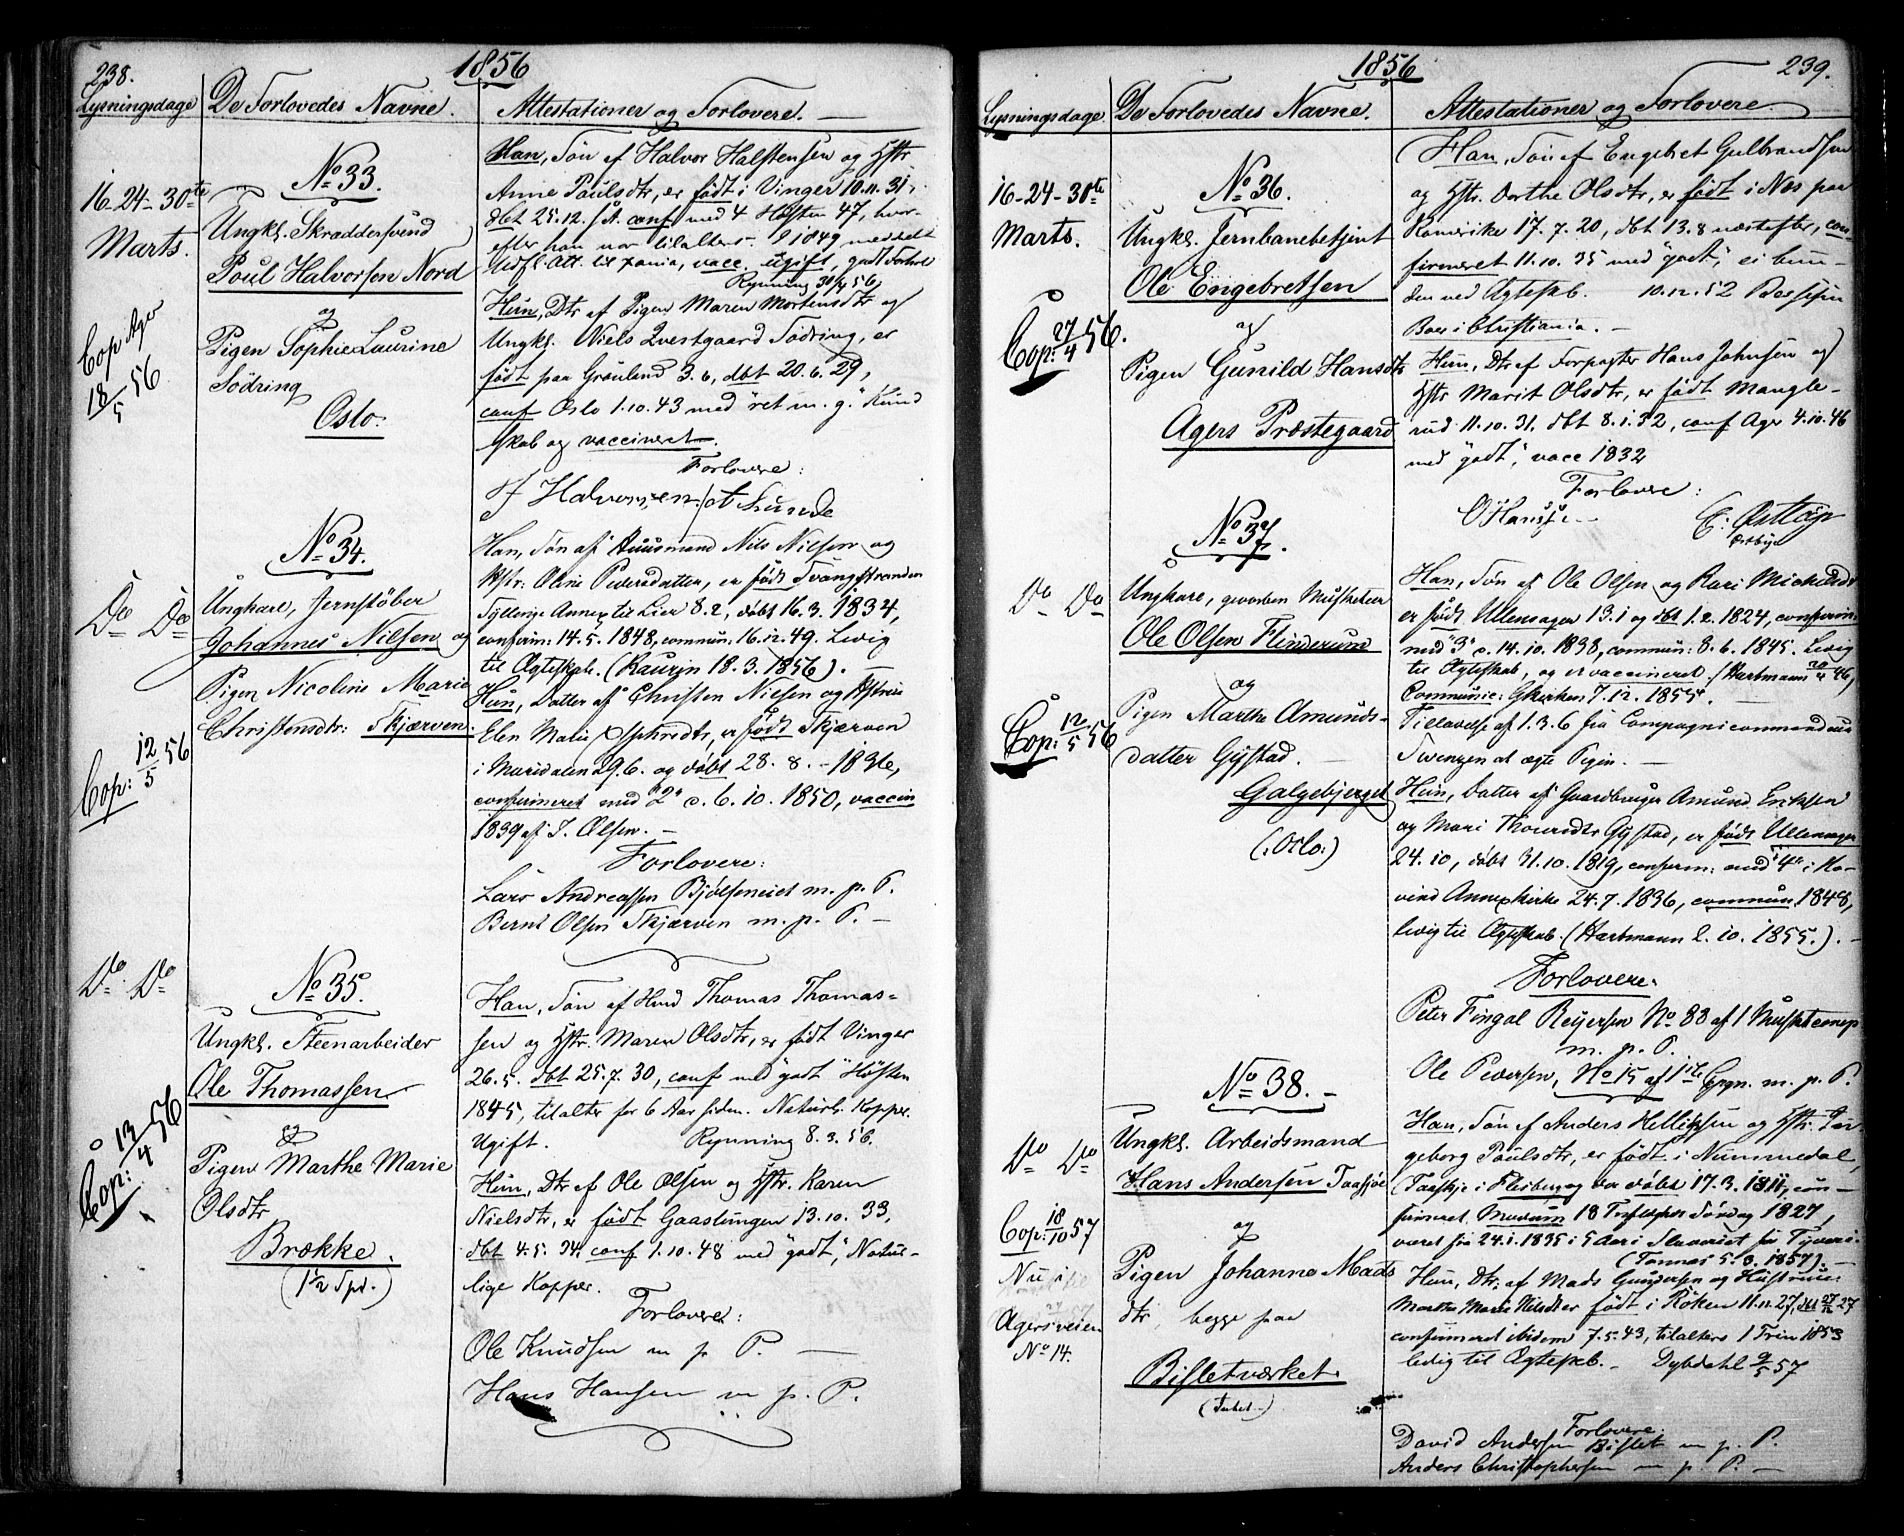 238.
1856
Lysningsdage
De Forlovedes Navne.
Attestationer og Forlovere.
16-24-30te
Marts.
Cop Ager
18/5 56
No 33.
Ungkl. Skræddersvend
Poul Halvorsen Nord
og
Pigen Sophie Laurine
Södring
Oslo.
Han, Søn af Halvor Halstensen og Hstr.
Anne Paulsdtr, er født i Vinger 10.11.31,
dbt 25.12. s. A. conf med 4 Høsten 47, hvor-
efter han var tilalters. 1849 meddelt
Udfl. Att. til Xania, vacc. ugift, godt Forhold
Rynning 56,
Hun, Dtr af Pigen Maren Mortensdtr og
Ungkl. Niels Qvestgaard Södring, er
født paa Grønland 3.6, dbt 20.6.29,
conf Oslo 1.10.43 med "ret m. g." Kund
skab og vaccineret.
Forlovere:
Halvorsen
Do Do
Cop: 12/5 56
No 34.
Ungkarl, Jernstøber
Johannes Nilsen og
Pigen Nicoline Marie
Christensdtr: Skjærven.
Han, Søn af Huusmand Nils Nilsen og
Hstr: Oline Pedersdatter, er født Svangstranden
Sylling Annex til Lier 8.2, døbt 16.3.1834,
confirm: 14.5.1848, commun: 16.12.49. Ledig
til Ægteskab. (Kaurin 18.3.1856). —
Hun, Datter af Christen Nielsen og Hstrue
Elen Marie, er født Skjærven
i Maridalen 29.6. og døbt 28.8. - 1836,
confirmeret med "2" c. 6.10.1850, vaccin
1839 af J. Olsen. —
Forlovere:
Lars Andreassen Bjølseneiet m. p. P.
Bernt Olsen Skjærven m. p. P. —
Do Do
Cop: 13/4 56
No 35.
Ungkl. Steenarbeider
Ole Thomassen
og
Pigen Marthe Marie
Olsdtr
Brække.
(1½ Spd.)
Han, Søn af Hmd Thomas Thomas-
sen og Hstr. Maren Olsdtr, er født Vinger
26.5. dbt 25.7.30, conf med "godt" Høsten
1845, tilalter for 6 Aar siden. Naturl. Kopper.
Ugift. Rynning 8.3.56.
Hun, Dtr af Ole Olsen og Hstr. Karen
Nielsdtr, er født Gaaslungen 13.10.33,
dbt 4.5.34. conf 1.10.48 med "godt", Natur-
lige Kopper.
Forlovere:
Ole Knudsen m p P. —
Hans Hansen m p. P.
1856
239.
Lysningsdage
De Forlovedes Navne.
Attestationer og Forlovere
16-24-30te
Marts.
Cop: 27/4 56.
No 36.
Ungkl. Jernbanebetjent
Ole Engebretsen
og
Pigen Gunild Hansdtr
Agers Præstegaard
Han, Søn af Engebret Gulbrandsen
og Hstr. Dorthe Olsdtr, er født i Næs paa
Romerike 17.7.20, dbt 13.8 næstefter, con-
firmeret 11.10.35 med "godt", ei bun-
den ved Ægteskb. 10.12.52
Boer i Christiania. —
Hun, Dtr af Forpagter Hans Johnsen og
Hstr Marit Olsdtr, er født Mangle-
rud 11.10.31. dbt 8.1.32, conf Ager 4.10.46
med "godt", vacc 1832
Forlovere:
O Hansen
Østbye
Do Do
Cop: 12/5 56
No 37.
Ungkarl, gevorben Musketeer
Ole Olsen Flinderum
og
Pigen Marthe Amunds-
datter Gystad. —
Galgebjerget
(:Oslo:)
Han, Søn af Ole Olsen og Kari Mickelsdr
er født Ullensager 13.1 og dbt 1.2.1824, confirm:
med "3" c. 14.10.1838, commun: 8.6.1845. Ledig
til Ægteskab, og er vaccineret. (Hartmann 20/4 46,
Communic: Gkirken 7.12.1855.
Tilladelse af 1.3.6 fra Compagnicommandeur
Svenzen at ægte Pigen. —
Hun, Datter af Gaardbruger Amund Eriksen
og Mari Thoresdtr Gystad, er født Ullensager
24.10, døbt 31.10.1819, confirm: med "4" i Ho-
vind Annexkirke 24.7.1836, commun 1848,
ledig til Ægteskab. (Hartmann 2.10.1855.). —
Forlovere:
Peter Fingal Reyersen No 83 af 1 Musketcomp
m. p. P.
Ole Pedersen, No 15 af 1ste Cpgn. m. p. P.
Do Do
Cop: 18/10 57
Nu i
Agersveien
No 14.
No 38. -
Ungkl. Arbeidsmand
Hans Andersen Taasjøe
og
Pigen Johanne Mads
dtr, begge paa
Bisletværket.
Han, Søn af Anders Helliksen og Hstr. In-
geborg Paulsdtr, er født i Nummedal,
i Flesberg og der døbt 17.3.1811, con-
firmeret 18 Søndag 1827,
været fra 24.1.1835 i 5 Aar i Slaveriet for Tyveri.
(Tannæs 5.3.1857) —
Hun, Dtr. af Mads Gundersen og Hustrue
Marthe Marie Nilsdtr født i Röken 11.11.27, dbt 27/12 27
confirmeret ibidem 7.5.43, tilalters 1 Trin 1853
ledig til Ægteskb. — Dybdahl 9/5 57
Forlovere:
David Andersen Bislet m p. P.
Anders Christophersen m p. P. —